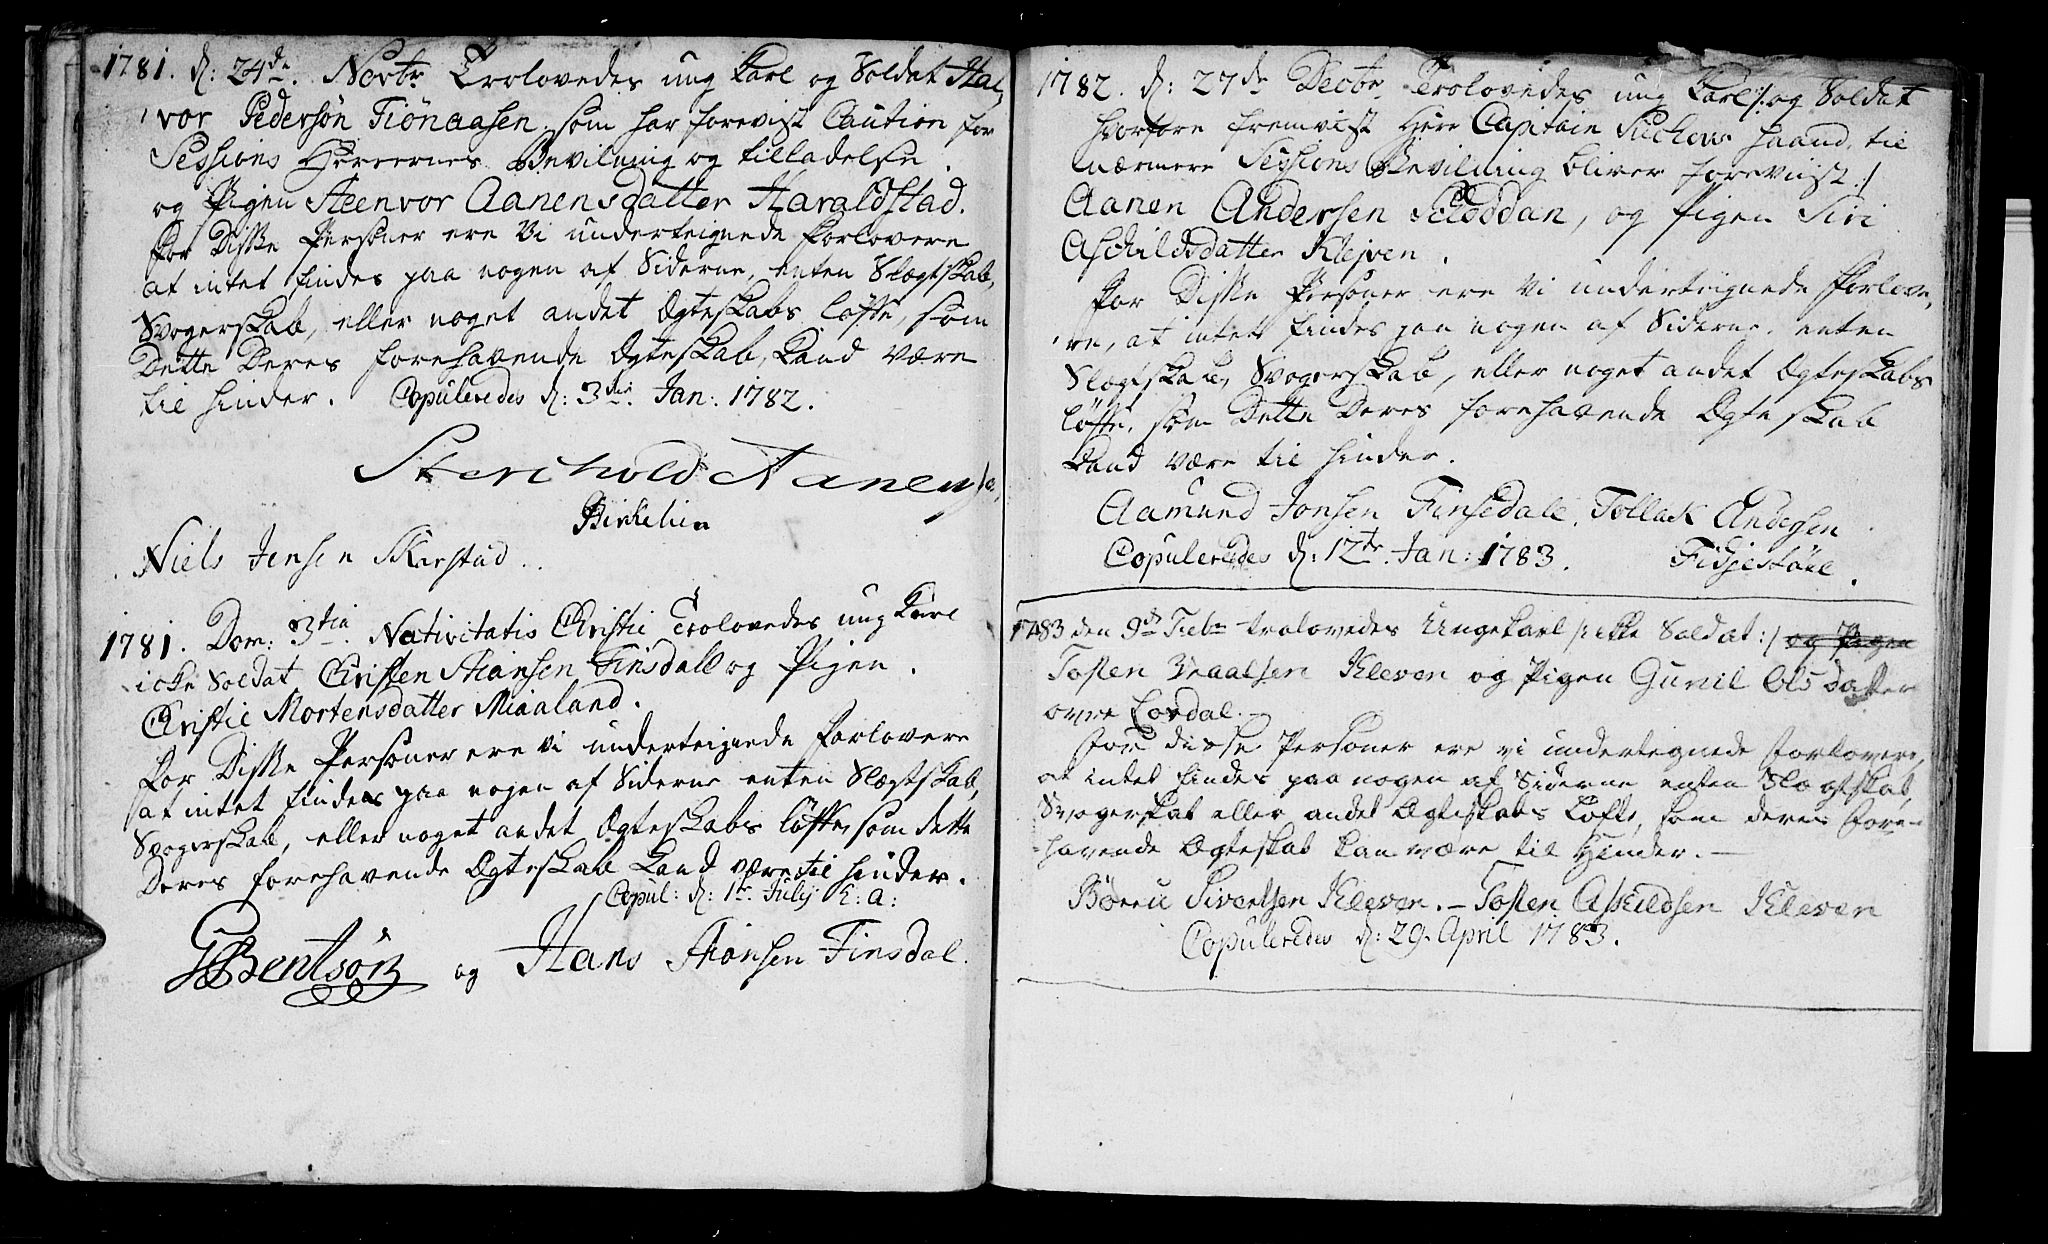 1781. d: 24de. Novbr Trolovedes ung Karl og Soldat Hal-
vor Pedersøn Fiønaasen, som har forevist Caution for
Sessions Herrernes Bevilning og tilladelse.
og Pigen Steenvor Aanensdatter Haraldstad.
For Disse Personer ere Vi underteignede Forlovere
at intet findes paa nogen af Siderne, enten Slegtskab,
Svogerskab, eller noget andet Ægteskabs løfte, som
Dette Deres forehavende Ægteskab, Kand være
til hinder. Copuleredes d: 3die Jan: 1782.
Aanens
Birkelien
Niels Jensen Skerstad.
1781. Dom: 3tia Nativitatis Christi Trolovedes ung Karl
icke Soldat Christen Hansen Finsdall og Pigen
Christie Mortensdatter Miaaland.
For Disse Personer ere Vi underteignede Forlovere
at intet findes paa nogen af Siderne enten Slegtskab,
Svogerskab, eller noget andet Ægteskabs løfte, som dette
Deres forehavende Ægteskab Kand være til hinder.
Copul: d: 1te July h: a:
Bentsøn og Hans Finsdal.
1782. d: 27de Decbr Trolovedes ung Karl /: og Soldat
hvorfore fremvist Herr Capitain haand, til
nærmere Sessions Bevilning bliver foreviist :/
Aanen Andersen Skoddan, og Pigen Siri
Aschildsdatter Klejven.
For Disse Personer ere Vi underteignede Forlove-
re, at intet findes paa nogen af Siderne, enten
Slegtskab, Svogerskab, eller noget andet Ægteskabs
løfte, som Dette Deres forehavende Ægteskab
Kand være til hinder.
Aamund Jonsen Finsedale. Tollak Andersen
Copuleredes d: 12te Jan: 1783. Fidjestøle.
1783 den 9de Feb: trolovedes Ungekarl /: icke Soldat :/ og Pigen
Tosten Kleven og Pigen Gunil Olsdatter
øvre Lordal.
For disse Personer ere vi undertegnede Forlovere,
at intet findes paa nogen af Siderne enten Slægtskab,
Svogerskab eller andet Ægteskabs Løfte, som deres fore-
havende Ægteskab kan være til Hinder.
Børru Sivertsen Kleven. - Tosten Askildsen Kleven
Copuleredes d: 29. April 1783.